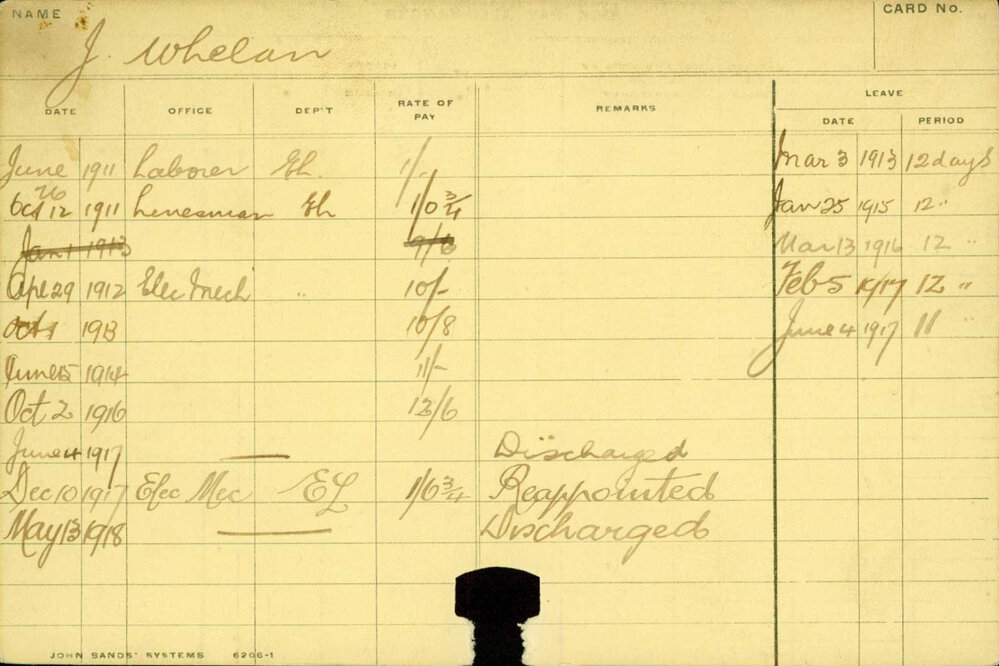 NAME
CARD No.
J. Whelan
DATE OFFICE DEP'T RATE OF PAY REMARKS LEAVE
DATE PERIOD
June 1911 Laborer EL. 1/- Mar 3 1913 12 days
Oct 12 1911 Linesman EL 1/0 3/4 Jan 25 1915 12 "
Jan 1 1913 9/6 Mar 13 1916 12 "
Apl 29 1912 Elec Mech " 10/- Feb 5 1917 12 "
Oct 1 1913 10/8 June 4 1917 11 "
June 15 1914 11/-
Oct 2 1916 12/6
June 4 1917 — Discharged
Dec 10 1917 Elec Mec EL 1/6 3/4 Reappointed
May 13 1918 — Discharged
JOHN SANDS' SYSTEMS 6206-1